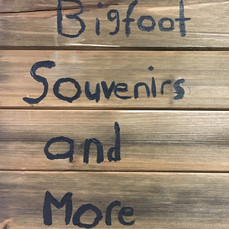 Bigfoot
Souvenirs
and
More